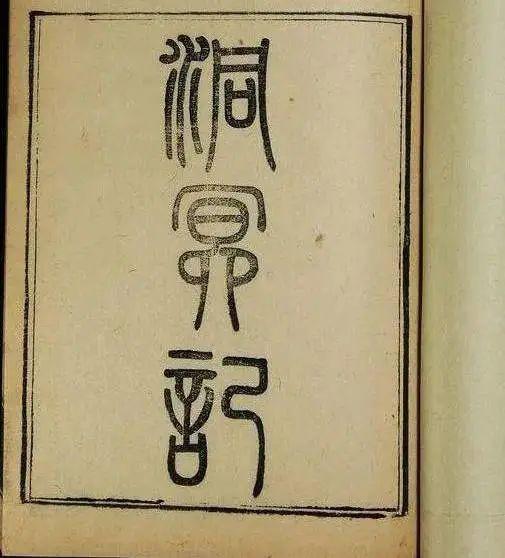 洞冥記